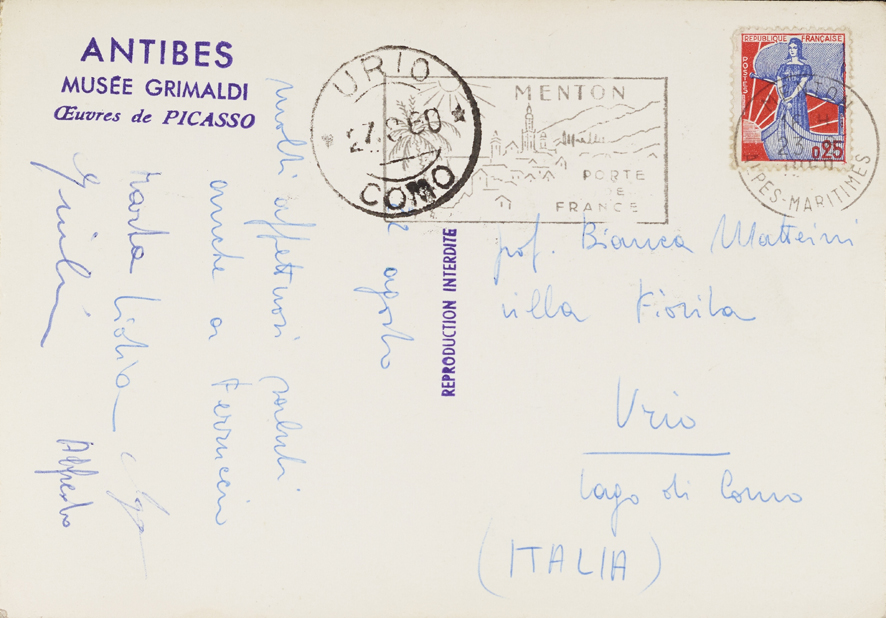 ANTIBES
MUSÉE GRIMALDI
Œuvres de PICASSO
URIO
27.8.60
COMO
MENTON
PORTE
DE
FRANCE
REPUBLIQUE FRANÇAISE
POSTES
0,25
MENTON
23
1960
ALPES-MARITIMES
REPRODUCTION INTERDITE
agosto
molti affettuosi saluti
anche a Ferruccio
Marta
Giulia
Alfredo
prof. Bianca Matteini
villa Fiorita
Urio
lago di Como
(ITALIA)